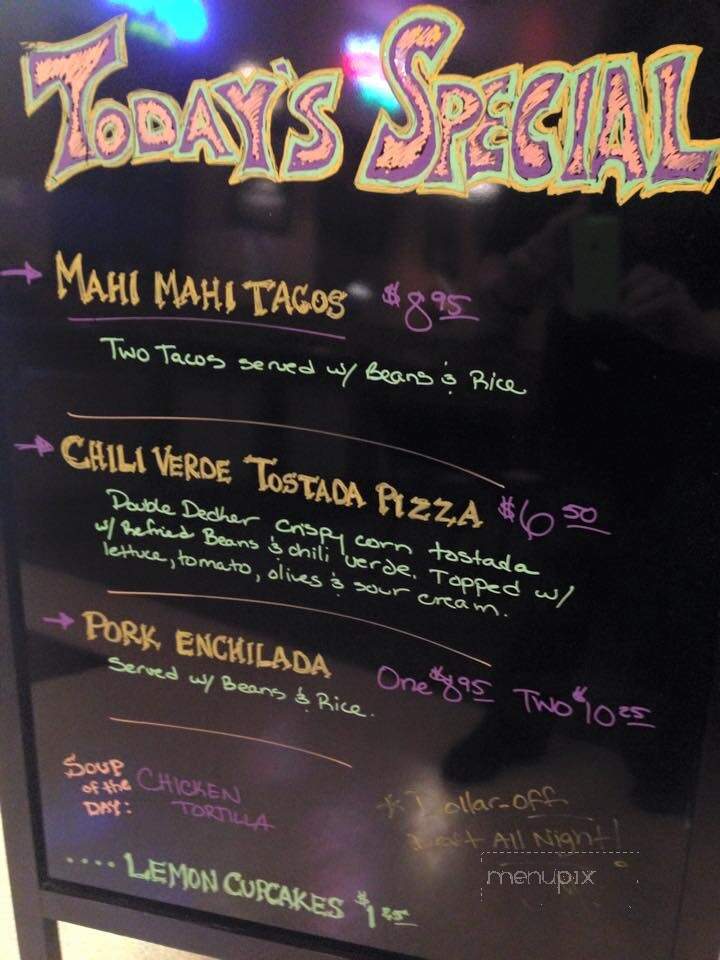 TODAY'S SPECIAL
MAHI MAHI TACOS $8.95
Two Tacos served w/ Beans & Rice
CHILI VERDE TOSTADA PIZZA $6.50
Double Decker crispy corn tostada
w/ Refried Beans & chili verde. Topped w/
lettuce, tomato, olives & sour cream.
PORK ENCHILADA
Served w/ Beans & Rice.
One $8.95 Two $10.25
SOUP OF the DAY: CHICKEN TORTILLA
* Dollar-off
Draft All Night!
.... LEMON CUPCAKES $1
menupix